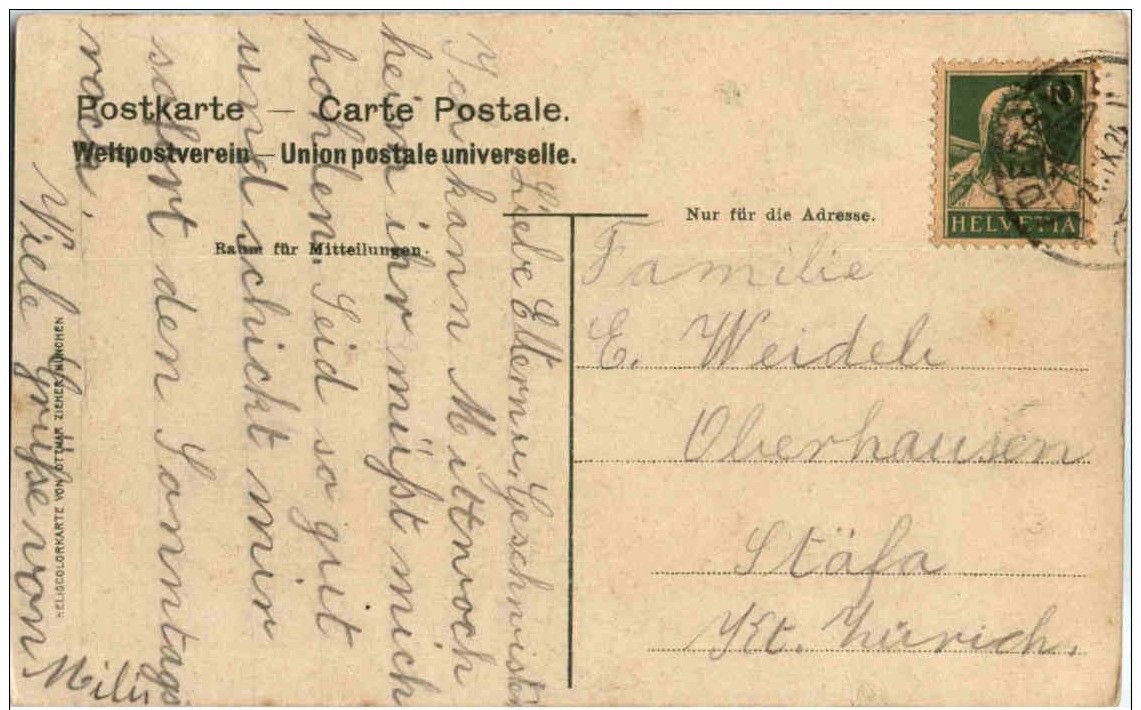 Postkarte — Carte Postale.
Weltpostverein — Union postale universelle.
Nur für die Adresse.
Raum für Mitteilungen.
HELVETIA
10
IX.24
Liebe Eltern u. Geschwister
Ich kann Mittwoch
heim ihr müßt mich
hohlen. Seid so gut
und schickt mir
sofort den Sonntags
rock.
Viele Grüße von
Familie
E. Weideli
Oberhausen
Stäfa
Kt. Zürich.
HELIOCOLORKARTE VON OTTMAR ZIEHER, MÜNCHEN